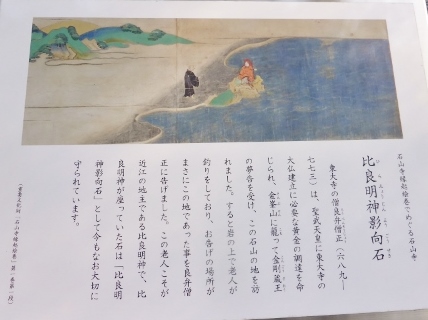 石山寺縁起絵巻でめぐる石山寺
比良明神影向石
ひらみょうじんようごうせき
東大寺の僧良弁僧正(六八九―
七七三)は、聖武天皇に東大寺の
大仏建立に必要な黄金の調達を命
じられ、金峯山に籠って金剛蔵王
の夢告を受け、この石山の地を訪
れました。すると岩の上で老人が
釣りをしており、お告げの場所が
まさにこの地であった事を良弁僧
正に告げました。この老人こそが
近江の地主である比良明神で、比
良明神が座っていた石は「比良明
神影向石」として今もなお大切に
守られています。
(重要文化財 石山寺縁起絵巻 第一巻第一段)